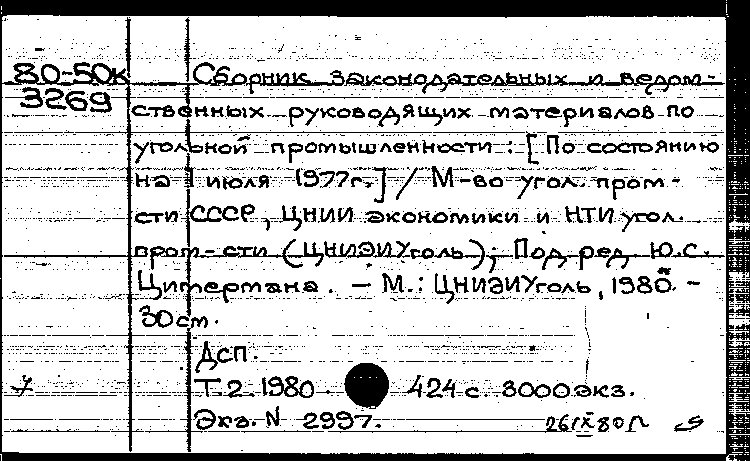 80-50к Сборник законодательных и ведом-
3269 ственных руководящих материалов по
угольной промышленности : [По состоянию
на 1 июля 1977г.] / М-во угол. пром-
сти СССР, ЦНИИ экономики и НТИ угол.
пром-сти (ЦНИЭИУголь); Под ред. Ю.С.
Цитермана. — М.: ЦНИЭИУголь, 1980. -
30см.
ДСП.
Т.2. 1980. 424 с. 3000экз.
Экз. N 2997. 26/IX80